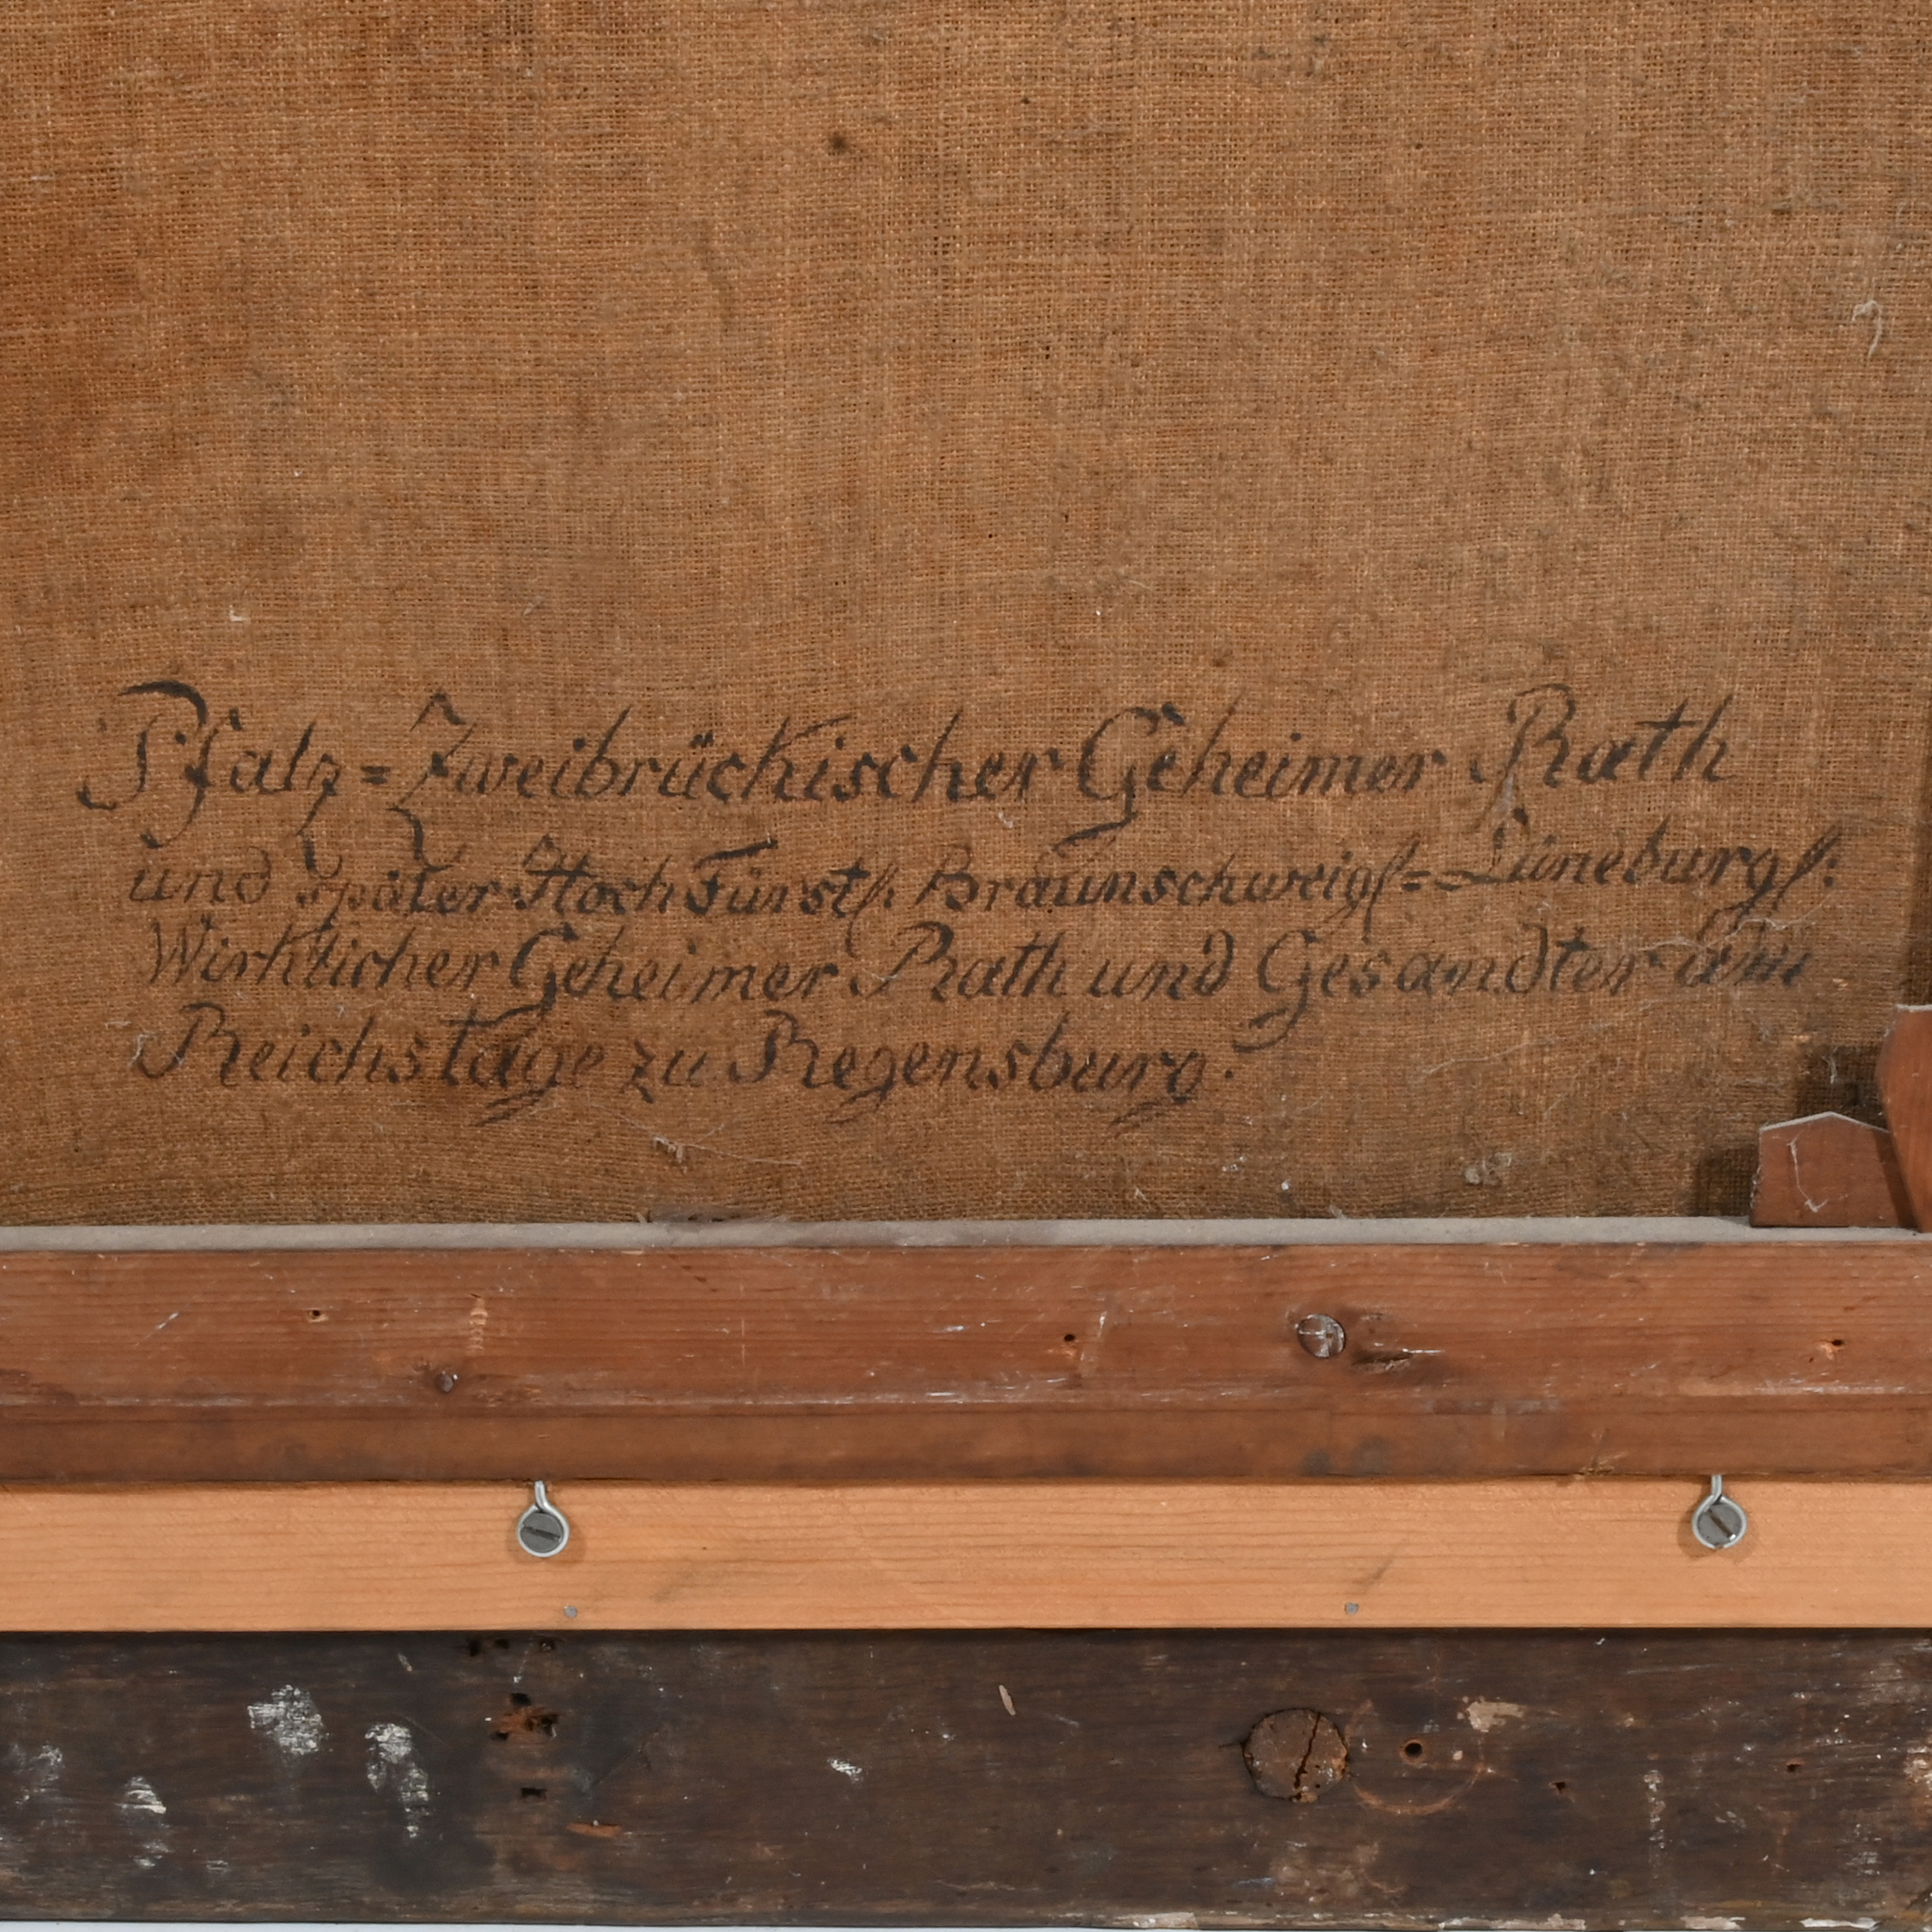 Pfalz=Zweibrückischer Geheimer Rath
und später HochFürstl. Braunschweigl=Lüneburgl.
Wirklicher Geheimer Rath und Gesandter am
Reichstage zu Regensburg.